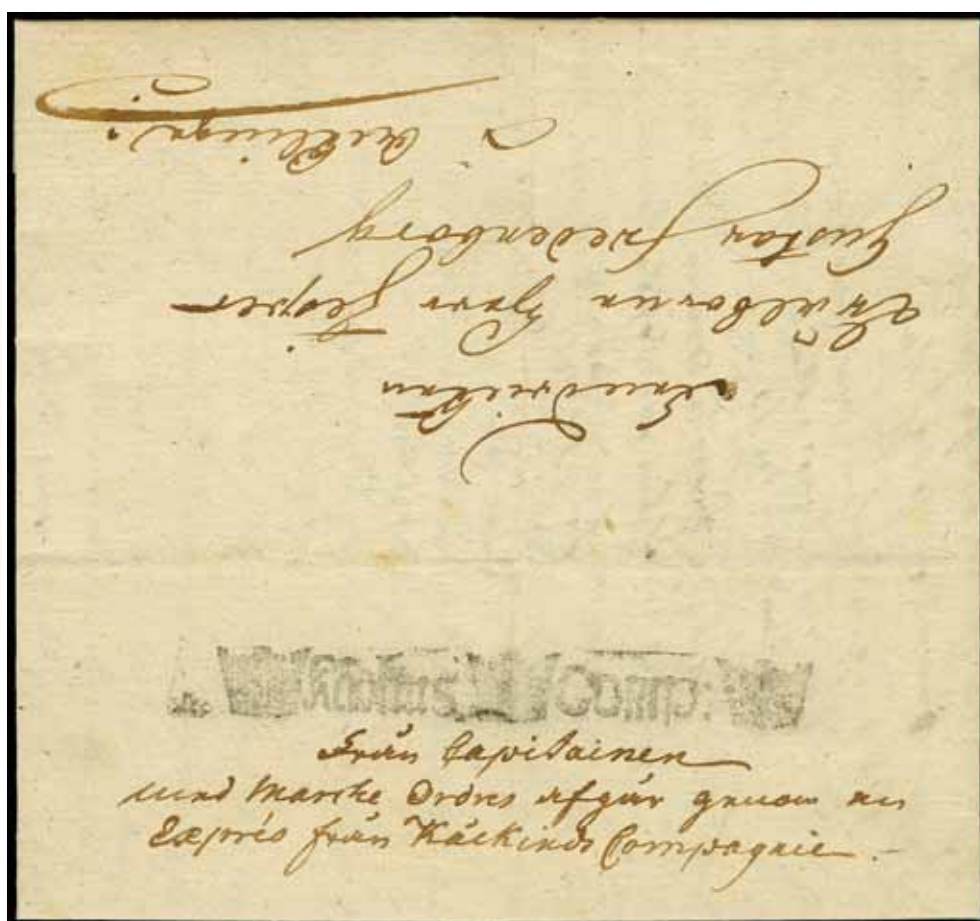 Wälborne Herr Jesper
Gustav Fredenborg
à
Comp:
Från Capitainen
med Marche Ordres afgår genom en
Exprés från Kåckinds Compagnie.-